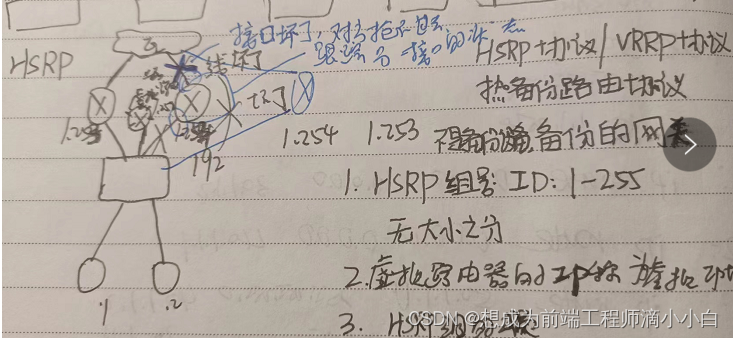 接口坏了,对方抢不过去
跟踪另一接口的状态
HSRP
线坏了
坏了
1.254
1.253
192
.1
.2
HSRP协议/VRRP协议
热备份路由协议
备份的网关
1. HSRP组号: ID: 1-255
无大小之分
2.虚拟路由器的IP称为虚拟IP地
3. HSRP组的
CSDN @想成为前端工程师滴小小白